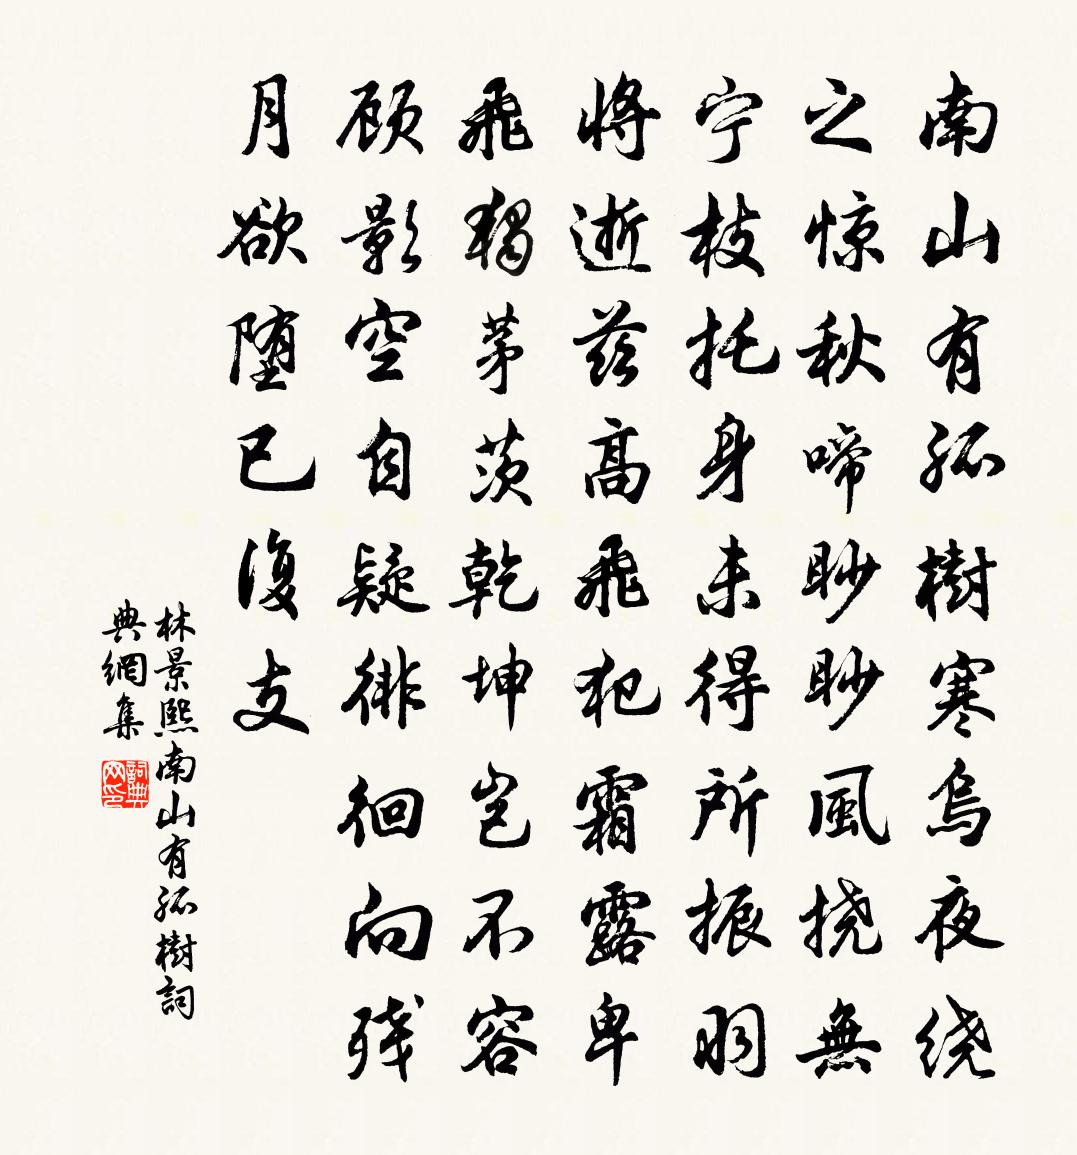 南山有孤樹寒烏夜绕
之惊秋啼眇眇風挠無
宁枝托身未得所振羽
將逝兹高飛犯霜露卑
飛獨茅茨乾坤岂不容
顾影空自疑徘徊向残
月欲堕已復支
林景熙南山有孤樹詞
典網集
詞典
网印